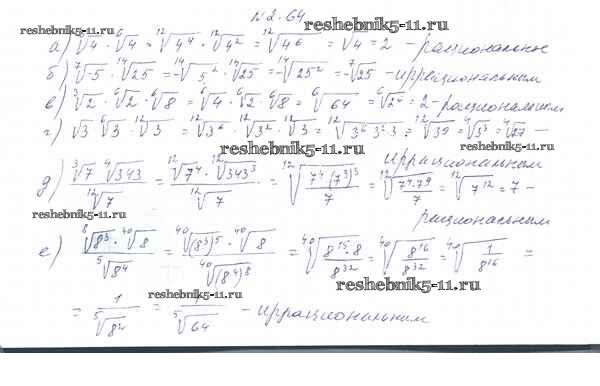 N 2.64
reshebnik5-11.ru
а) ∛4 · ⁶√4 = ¹²√4⁴ · ¹²√4² = ¹²√4⁶ = √4 = 2 – рациональное
reshebnik5-11.ru
б) ⁷√-5 · ¹⁴√25 = -¹⁴√5² · ¹⁴√25 = -¹⁴√25² = -⁷√25 – иррациональным
reshebnik5-11.ru
в) ∛2 · ⁶√2 · ⁶√8 = ⁶√4 · ⁶√2 · ⁶√8 = ⁶√64 = ⁶√2⁶ = 2 – рациональным
г) √3 ⁶√3 · ¹²√3 = ¹²√3⁶ · ¹²√3² · ¹²√3 = ¹²√3⁶ 3² 3 = ¹²√3⁹ = ⁴√3³ = ⁴√27 –
reshebnik5-11.ru
иррациональным
д) ∛7 ⁴√343 / ¹²√7 = ¹²√7⁴ · ¹²√343³ / ¹²√7 = ¹²√(7⁴ (7³)³ / 7) = ¹²√(7⁴ · 7⁹ / 7) = ¹²√7¹² = 7 –
reshebnik5-11.ru
рациональным
reshebnik5-11.ru
е) ⁸√8³ · ⁴⁰√8 / ⁵√8⁴ = ⁴⁰√(8³)⁵ · ⁴⁰√8 / ⁴⁰√(8⁴)⁸ = ⁴⁰√(8¹⁵ · 8 / 8³²) = ⁴⁰√(8¹⁶ / 8³²) = ⁴⁰√(1 / 8¹⁶) =
reshebnik5-11.ru
reshebnik5-11.ru
= 1 / ⁵√8² = 1 / ⁵√64 – иррациональным
reshebnik5-11.ru